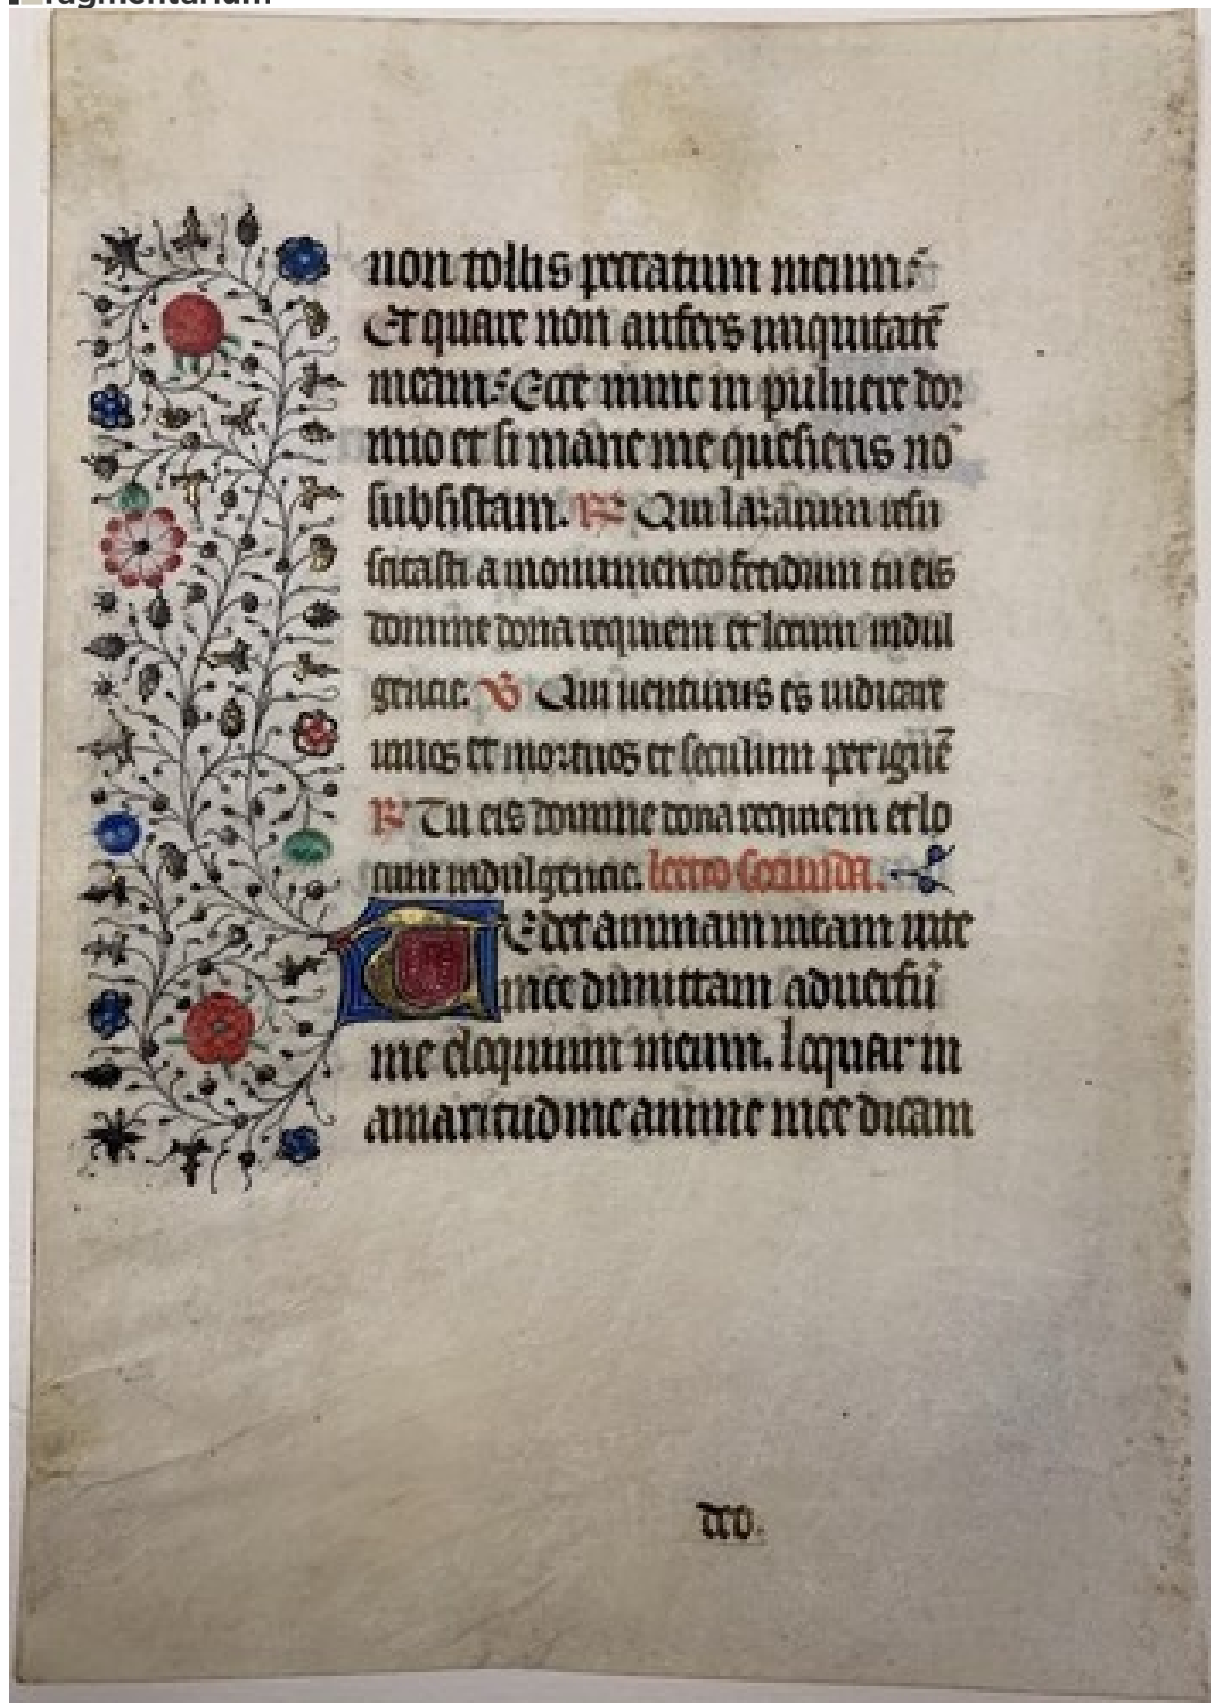 fragmentarium
non tollis peccatum meum?
Et quare non aufers iniquitatē
meam? Ecce nunc in puluere dor
mio et si mane me quesieris nō
subsistam. R Qui lazarum resu
scitasti a monumento fetidum tu eis
domine dona requiem et locum indul
gencie. V Qui uenturus es iudicare
uiuos et mortuos et seculum per ignē
R Tu eis domine dona requiem et lo
cum indulgencie. lectio secunda.
TEdet animam meam uite
mee dimittam aduersū
me eloquium meum. loquar in
amaritudine anime mee dicam
deo.